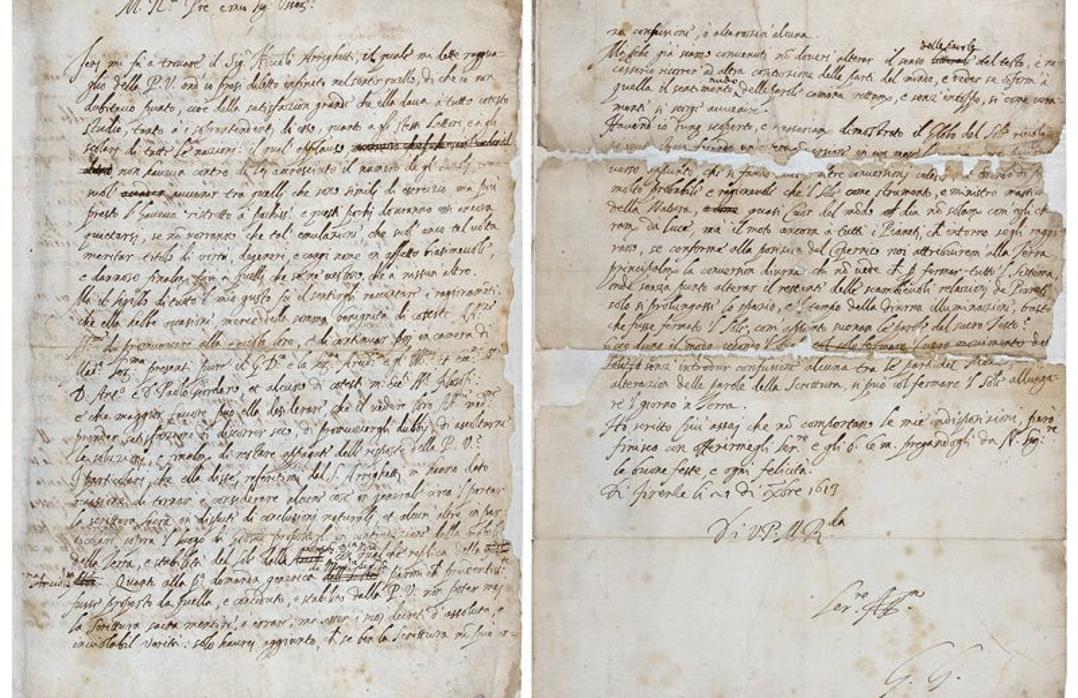 M. R.do Pre e mio Sig. Oss.mo
Ieri mi fu à trovare il Sig. Niccolò Arrighetti, il quale mi dette raggua-
glio della P. V. ond'io presi diletto infinito nel sentir quello, di che io non
dubitavo punto, cioè della satisfazion grande che ella dava à tutto cotesto
Studio, tanto à i sopraintendenti di esso, quanto à gli stessi Lettori, e à gli
scolari di tutte le nazioni: il qual applauso
non haveva contro di lei accresciuto il numero de gli
suole avvenir tra quelli che sono simili di esercizio, ma più
presto l'haveva ristretto à pochiss.i e questi pochi dovranno essi ancora
quietarsi, se non vorranno che tale emulazione, che suole anco tal volta
meritar titolo di virtù, degeneri, e cangi nome in affetto biasimevole,
e dannoso finalm.te più à quelli che se ne vestono, che à nissun altro.
Ma il sigillo di tutto il mio gusto fu il sentirgli raccontare i ragionamti
che ella hebbe occasione, mercè della somma benignità di coteste AA.
di promuovere alla tavola loro, e di continuar poi in camera di
Mad.ma Ser.ma presenti pure il G. D. e la Ser. Arcid.
D. Ant.o e D. Paolo Giordano, et alcuni di cotesti
e che maggior favore può ella desiderare, che il vedere loro
prender satisfazione di discorrer seco, di promuovergli dubbii, di ascoltarne
le soluzioni, e finalm. di restare appagati delle risposte della P. V.?
I particolari, che ella disse, referitimi dal S. Arrighetti, mi hanno dato
occasione di tornar à considerare alcune cose in generale circa 'l portar
la scrittura sacra in dispute di conclusioni naturali, et alcun'altre in par-
ticolare sopra 'l luogo di Giosuè propostoli in contradizione della mobilità
della Terra, e stabilità del Sole dalla con qualche replica della
Quanto alla p.a domanda generica parmi che prudentiss.
fusse proposto da quella, e conceduto, e stabilito dalla P. V. non poter mai
la Scrittura sacra mentire, o errare; ma esser i suoi decreti d'assoluta, e
inviolabil verità: solo haverei aggiunto, che se ben la Scrittura nõ può er-
na confusione, o alterazion alcuna.
Mà se già siamo convenuti nõ doversi alterar il senso delle parole del testo, è ne-
cessario ricorrer ad altra costituzione delle parti del mondo, e veder se conforme à
quella il sentimento nudo delle parole camina rettam.e, e senz' intoppo, si come vera-
mente si scorge avvenire.
Havend'io dunq. scoperto, e necessariam. dimostrato il Globo del Sole rivolg.
in un mese
verso appunto che si fanno tutte l'altre conversioni celesti,
molto probabile e ragionevole che 'l Sole come strumento, e ministro massimo
della Natura, quasi Cuor del mõdo dia nõ solam. com'egli chia-
ram. dà luce, mà il moto ancora à tutti i Pianeti, che intorno se gli raggi-
rano, se conforme alla posizion del Copernico noi attribuirem alla Terra
principalm. la conversion diurna chi nõ vede che p. fermar tutto 'l Sistema,
onde senza punto alterar il restante delle scambievoli relazioni de Pianeti
solo si prolungasse lo spazio, e 'l tempo della diurna illuminazione, bastò
che fusse fermato 'l Sole, com' appunto suonan le parole del sacro testo?
Ecco dunq. il modo secondo 'l quale
senz' introdur confusione alcuna tra le parti del Mondo
alterazion delle parole della Scrittura, si può col fermare 'l Sole allunga-
re 'l giorno in Terra.
Ho scritto più assai che nõ comportano le mie indisposizioni, però
finisco con offerirmegli ser.re e gli b. le m. pregandogli da N. Sig.re
le buone feste e ogni felicità.
Di Firenze li 21 di Xbre 1613
Di V. P. M. R.da
Ser.re Aff.mo
G. G.